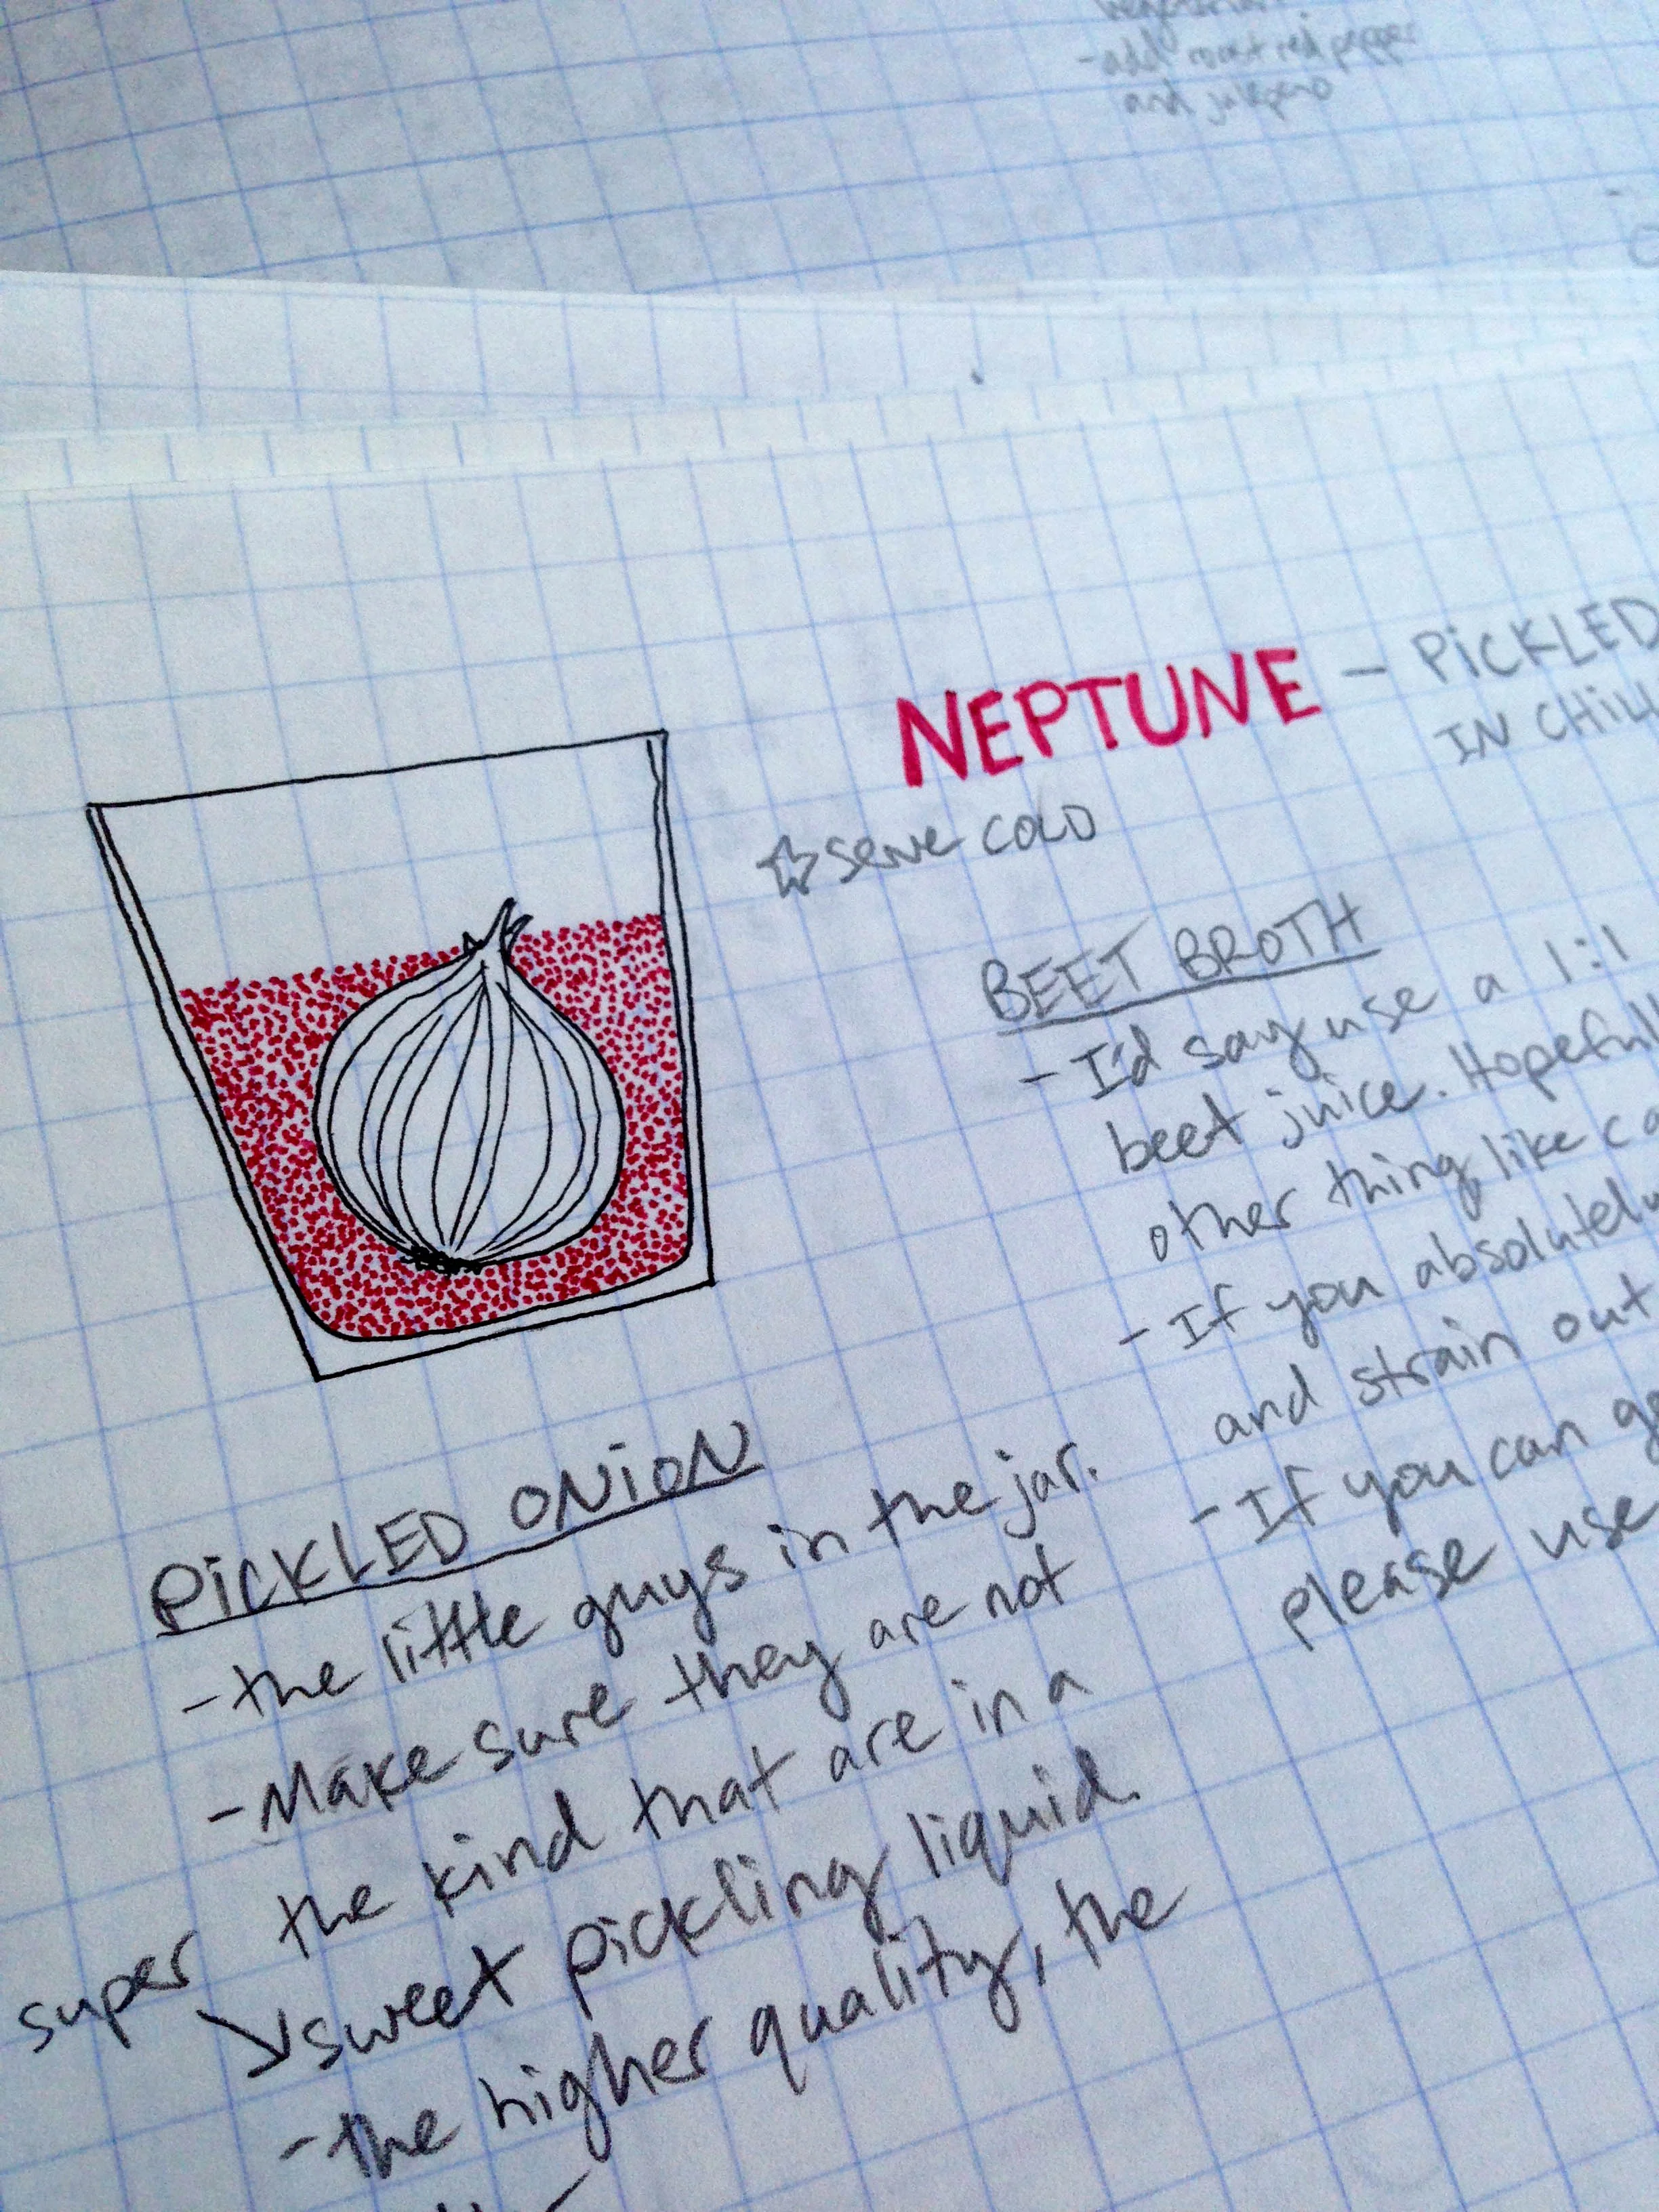 - add roast red pepper
and jalepeno
NEPTUNE - PICKLED
IN CHILL
☆ serve COLD
BEET BROTH
- I'd say use a 1:1
beet juice. Hopefull
other thing like ca
- If you absolutely
and strain out
- If you can ge
please use
PICKLED ONION
- the little guys in the jar.
- Make sure they are not
the kind that are in a
super
sweet pickling liquid.
- the higher quality, the